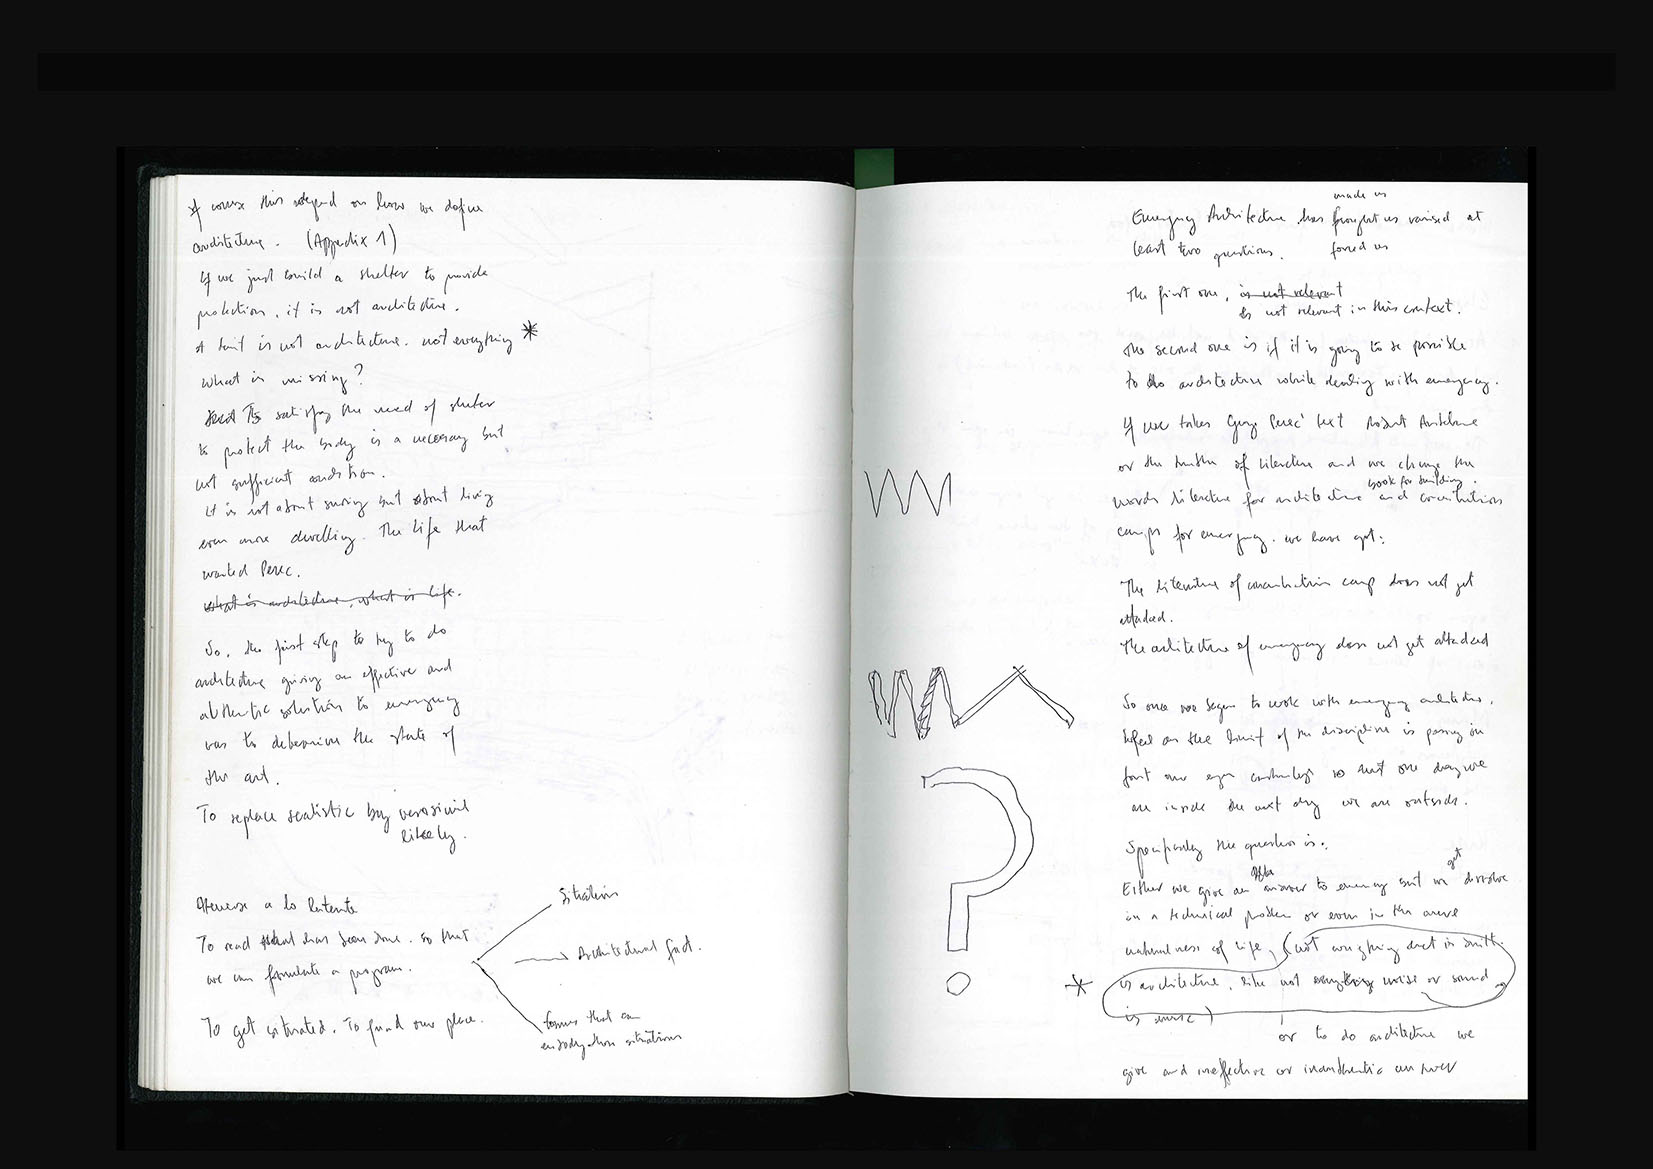 of course this depend on how we define
architecture. (Appendix 1)
If we just build a shelter to provide
protection, it is not architecture.
A tent is not architecture. not everything *
What is missing?
To satisfy the need of shelter
to protect the body is a necessary but
not sufficient condition.
It is not about surviving but about living
even more dwelling. The life that
wanted Perec.
what is architecture, what is life.
So, the first step to try to do
architecture giving an effective and
authentic solution to emergency
was to determine the state of
the art.
To replace realistic by verosimil
likely.
Atenerse a lo latente
To read what has been done. so that
we can formulate a program.
To get situated. To find our place.
Situations
Architectural fact.
forms that can
embody those situations
made us
Emergency Architecture has brought us raised at
least two questions. forced us
The first one, is not relevant
is not relevant in this context.
The second one is if it is going to be possible
to do architecture while dealing with emergency.
If we takes Perec' text Robert Antelme
or the truth of literature and we change the
book for building.
words literature for architecture and concentration
camps for emergency. we have got:
The literature of concentration camp does not get
attacked.
The architecture of emergency does not get attacked
So once we began to work with emergency architecture,
the limit of the discipline is passing in
front our eyes constantly so that one day we
are inside the next day we are outside.
Specifically the question is:
get
Either we give an answer to emergency but we dissolve
in a technical problem or even in the mere
naturalness of life, (not anything that is built
* is architecture, like not anything noise or sound
is music)
or to do architecture we
give and ineffective or inauthentic answer